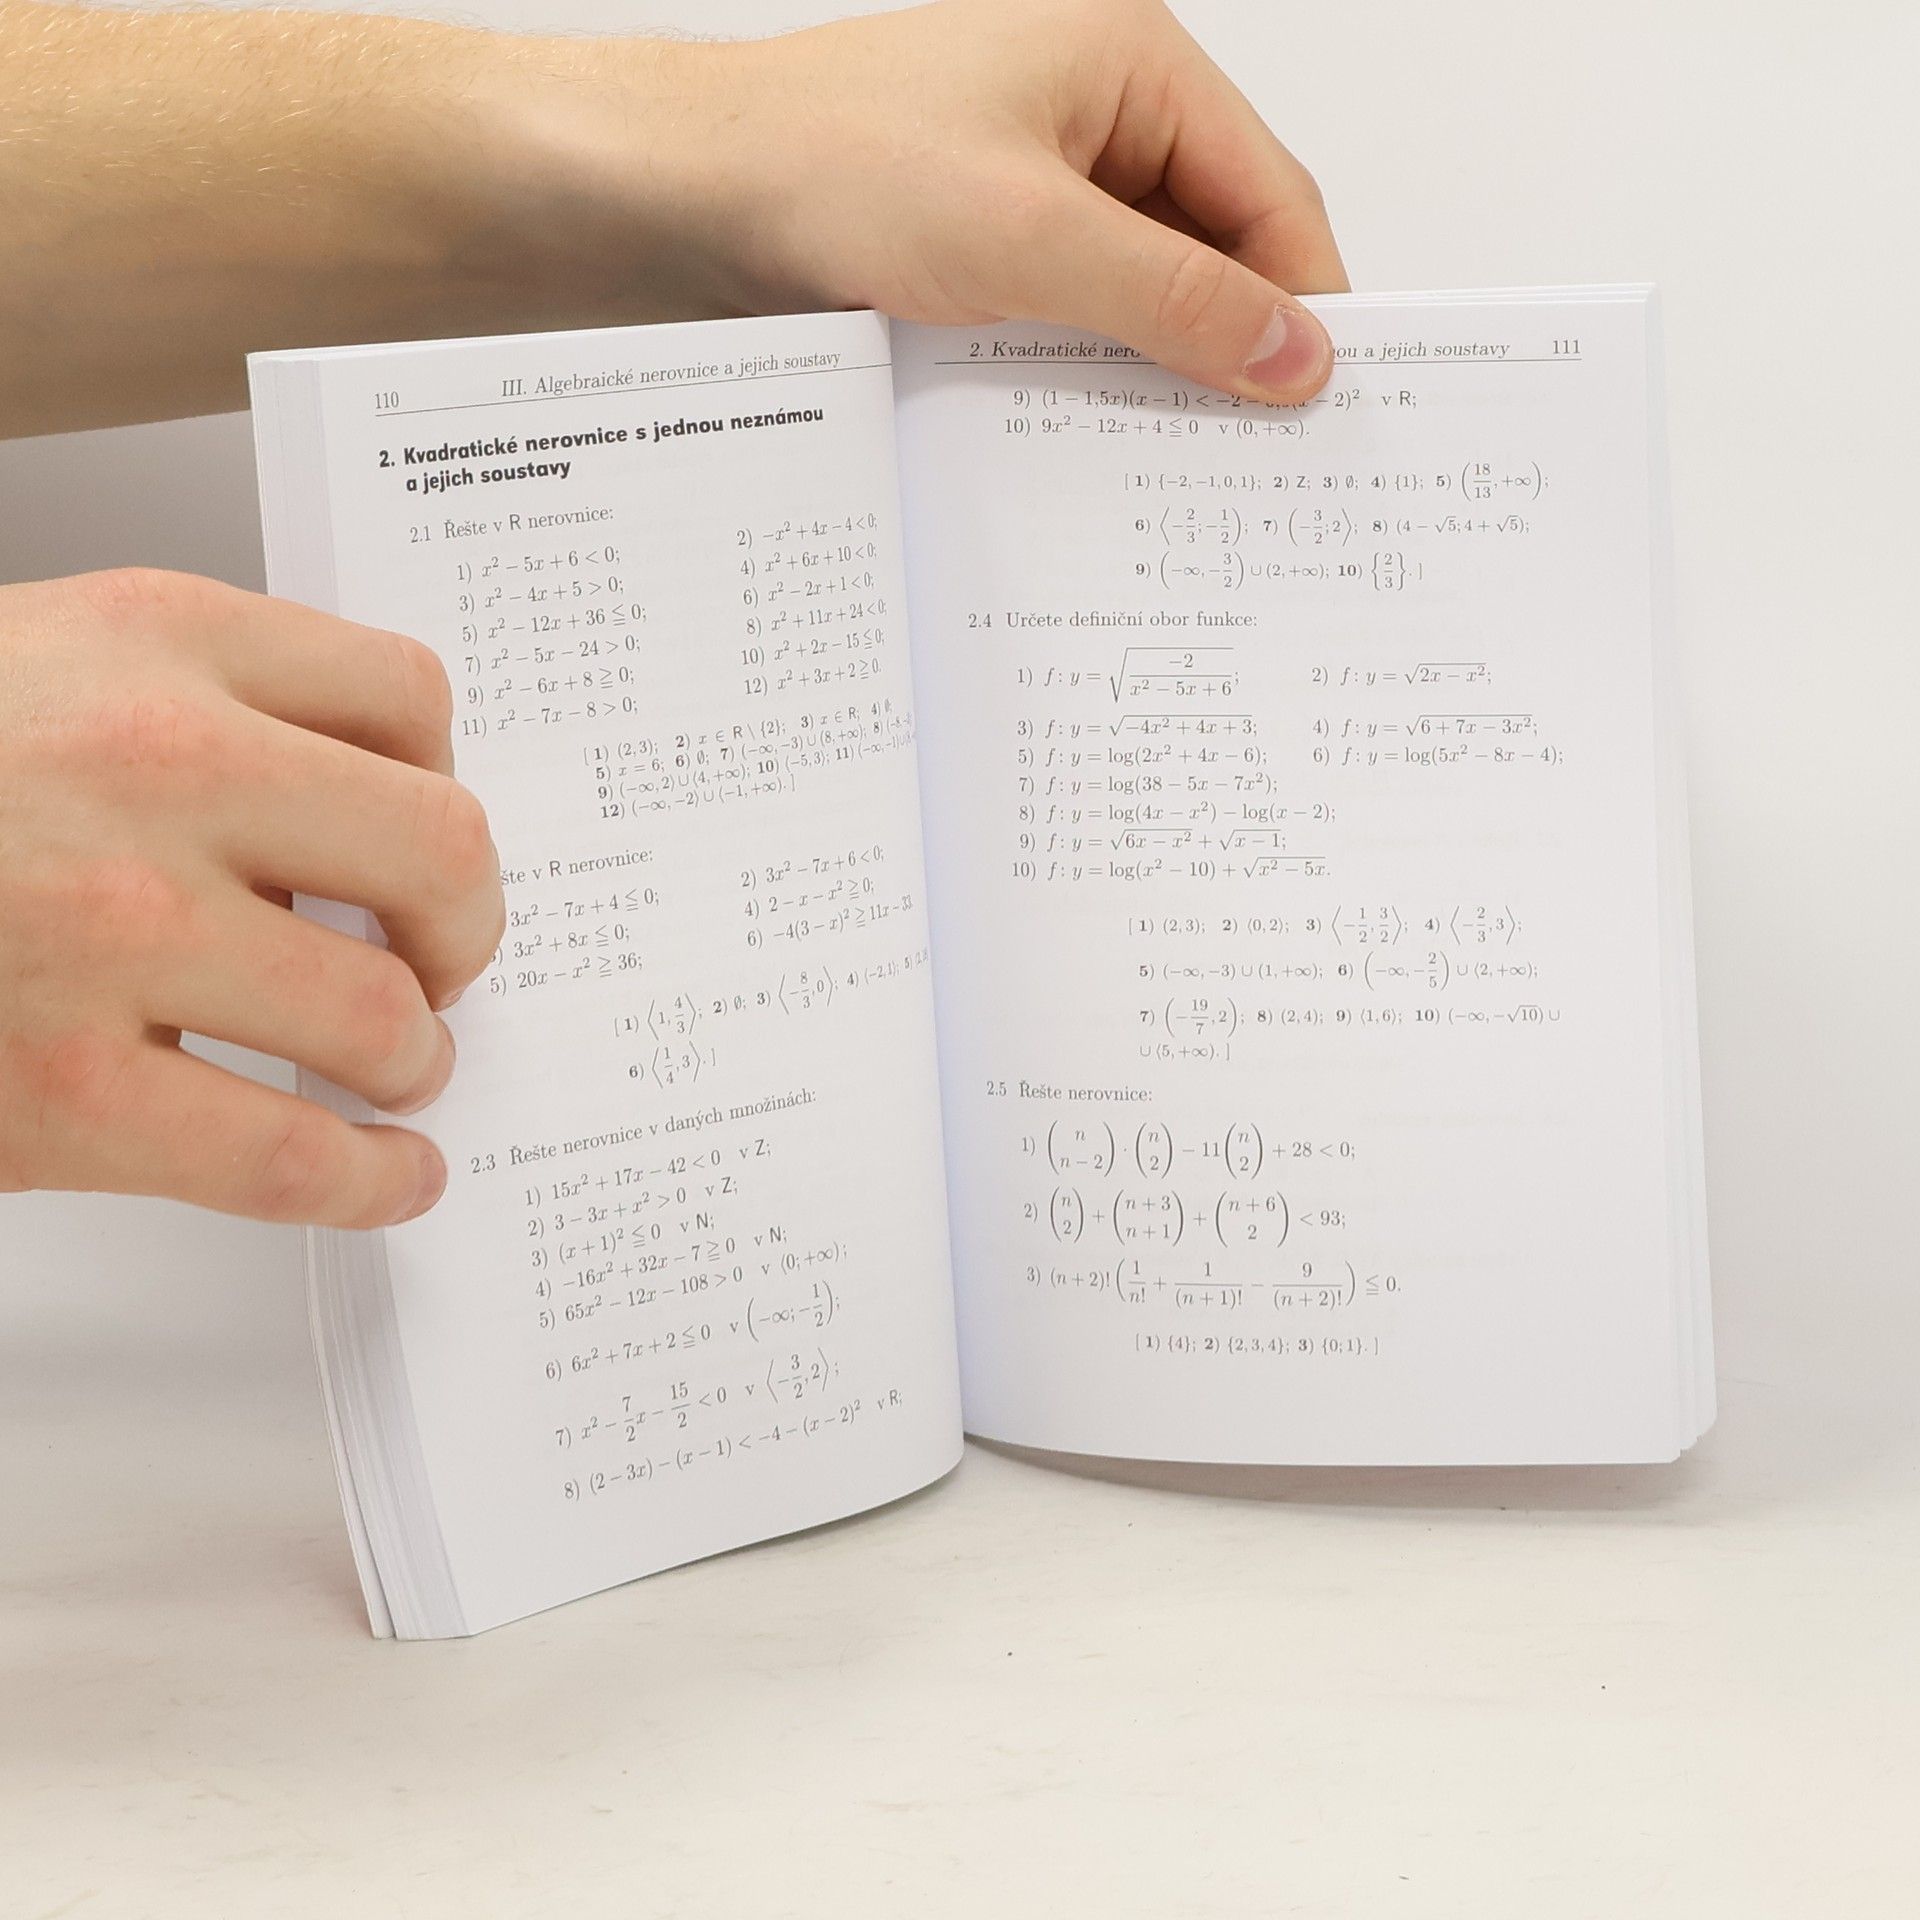 110 III. Algebraické nerovnice a jejich soustavy
2. Kvadratické nerovnice s jednou neznámou
a jejich soustavy
2.1 Řešte v R nerovnice:
1) x² − 5x + 6 < 0; 2) −x² + 4x − 4 < 0;
3) x² − 4x + 5 > 0; 4) x² + 6x + 10 < 0;
5) x² − 12x + 36 ≦ 0; 6) x² − 2x + 1 < 0;
7) x² − 5x − 24 > 0; 8) x² + 11x + 24 < 0;
9) x² − 6x + 8 ≧ 0; 10) x² + 2x − 15 ≦ 0;
11) x² − 7x − 8 > 0; 12) x² + 3x + 2 ≧ 0.
[ 1) (2, 3); 2) x ∈ R \ {2}; 3) x ∈ R; 4) ∅;
5) x = 6; 6) ∅; 7) (−∞, −3) ∪ (8, +∞); 8)
9) (−∞, 2) ∪ ⟨4, +∞); 10) ⟨−5, 3⟩; 11) (−∞, −1) ∪
12) (−∞, −2⟩ ∪ ⟨−1, +∞). ]
v R nerovnice:
3x² − 7x + 4 ≦ 0; 2) 3x² − 7x + 6 < 0;
3x² + 8x ≦ 0; 4) 2 − x − x² ≧ 0;
5) 20x − x² ≧ 36; 6) −4(3 − x)² ≧ 11x − 33.
[ 1) ⟨1, 4/3⟩; 2) ∅; 3) ⟨−8/3, 0⟩; 4) ⟨−2, 1⟩; 5)
6) ⟨1/4, 3⟩. ]
2.3 Řešte nerovnice v daných množinách:
1) 15x² + 17x − 42 < 0 v Z;
2) 3 − 3x + x² > 0 v Z;
3) (x + 1)² ≦ 0 v N;
4) −16x² + 32x − 7 ≧ 0 v N;
5) 65x² − 12x − 108 > 0 v ⟨0; +∞);
6) 6x² + 7x + 2 ≦ 0 v (−∞; −1/2);
7) x² − 7/2x − 15/2 < 0 v ⟨−3/2, 2⟩;
8) (2 − 3x) − (x − 1) < −4 − (x − 2)² v R;
2. Kvadratické a jejich soustavy 111
9) (1 − 1,5x)(x − 1) < −2 − − 2)² v R;
10) 9x² − 12x + 4 ≦ 0 v (0, +∞).
[ 1) {−2, −1, 0, 1}; 2) Z; 3) ∅; 4) {1}; 5) (18/13, +∞);
6) ⟨−2/3; −1/2); 7) (−3/2; 2⟩; 8) (4 − √5; 4 + √5);
9) (−∞, −3/2) ∪ (2, +∞); 10) {2/3}. ]
2.4 Určete definiční obor funkce:
1) f : y = √(−2/(x² − 5x + 6)); 2) f : y = √(2x − x²);
3) f : y = √(−4x² + 4x + 3); 4) f : y = √(6 + 7x − 3x²);
5) f : y = log(2x² + 4x − 6); 6) f : y = log(5x² − 8x − 4);
7) f : y = log(38 − 5x − 7x²);
8) f : y = log(4x − x²) − log(x − 2);
9) f : y = √(6x − x²) + √(x − 1);
10) f : y = log(x² − 10) + √(x² − 5x).
[ 1) (2, 3); 2) ⟨0, 2⟩; 3) ⟨−1/2, 3/2⟩; 4) ⟨−2/3, 3⟩;
5) (−∞, −3) ∪ (1, +∞); 6) (−∞, −2/5) ∪ (2, +∞);
7) (−19/7, 2); 8) (2, 4); 9) ⟨1, 6⟩; 10) (−∞, −√10) ∪
∪ ⟨5, +∞). ]
2.5 Řešte nerovnice:
1) (n n − 2) · (n 2) − 11(n 2) + 28 < 0;
2) (n 2) + (n + 3 n + 1) + (n + 6 2) < 93;
3) (n + 2)! (1/n! + 1/(n + 1)! − 9/(n + 2)!) ≦ 0.
[ 1) {4}; 2) {2, 3, 4}; 3) {0; 1}. ]